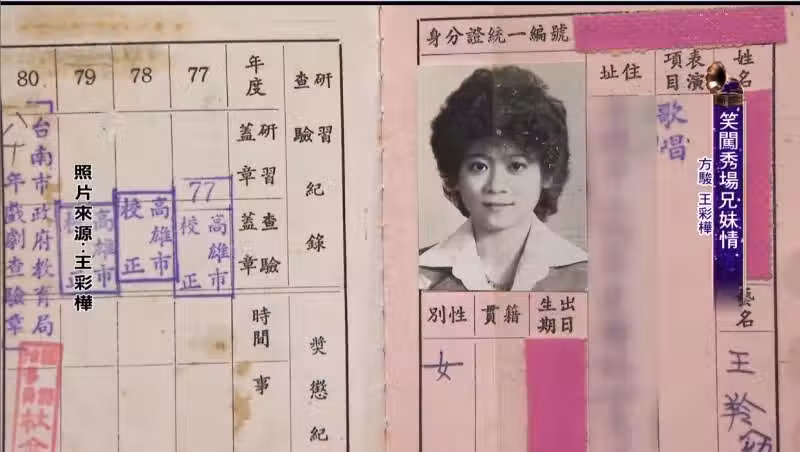 身分證統一編號
姓名
表演項目
歌唱
住址
出生日期
籍貫
性別
女
藝名
王羚
笑闖秀場兄妹情
方駿 王彩樺
研習查驗紀錄
年度
77
78
79
80
研習蓋章
查驗蓋章
77
高雄市
校正
高雄市
校正
高雄市
校正
台南市政府教育局
八十年戲劇查驗章
照片來源:王彩樺
時間
事
獎懲紀